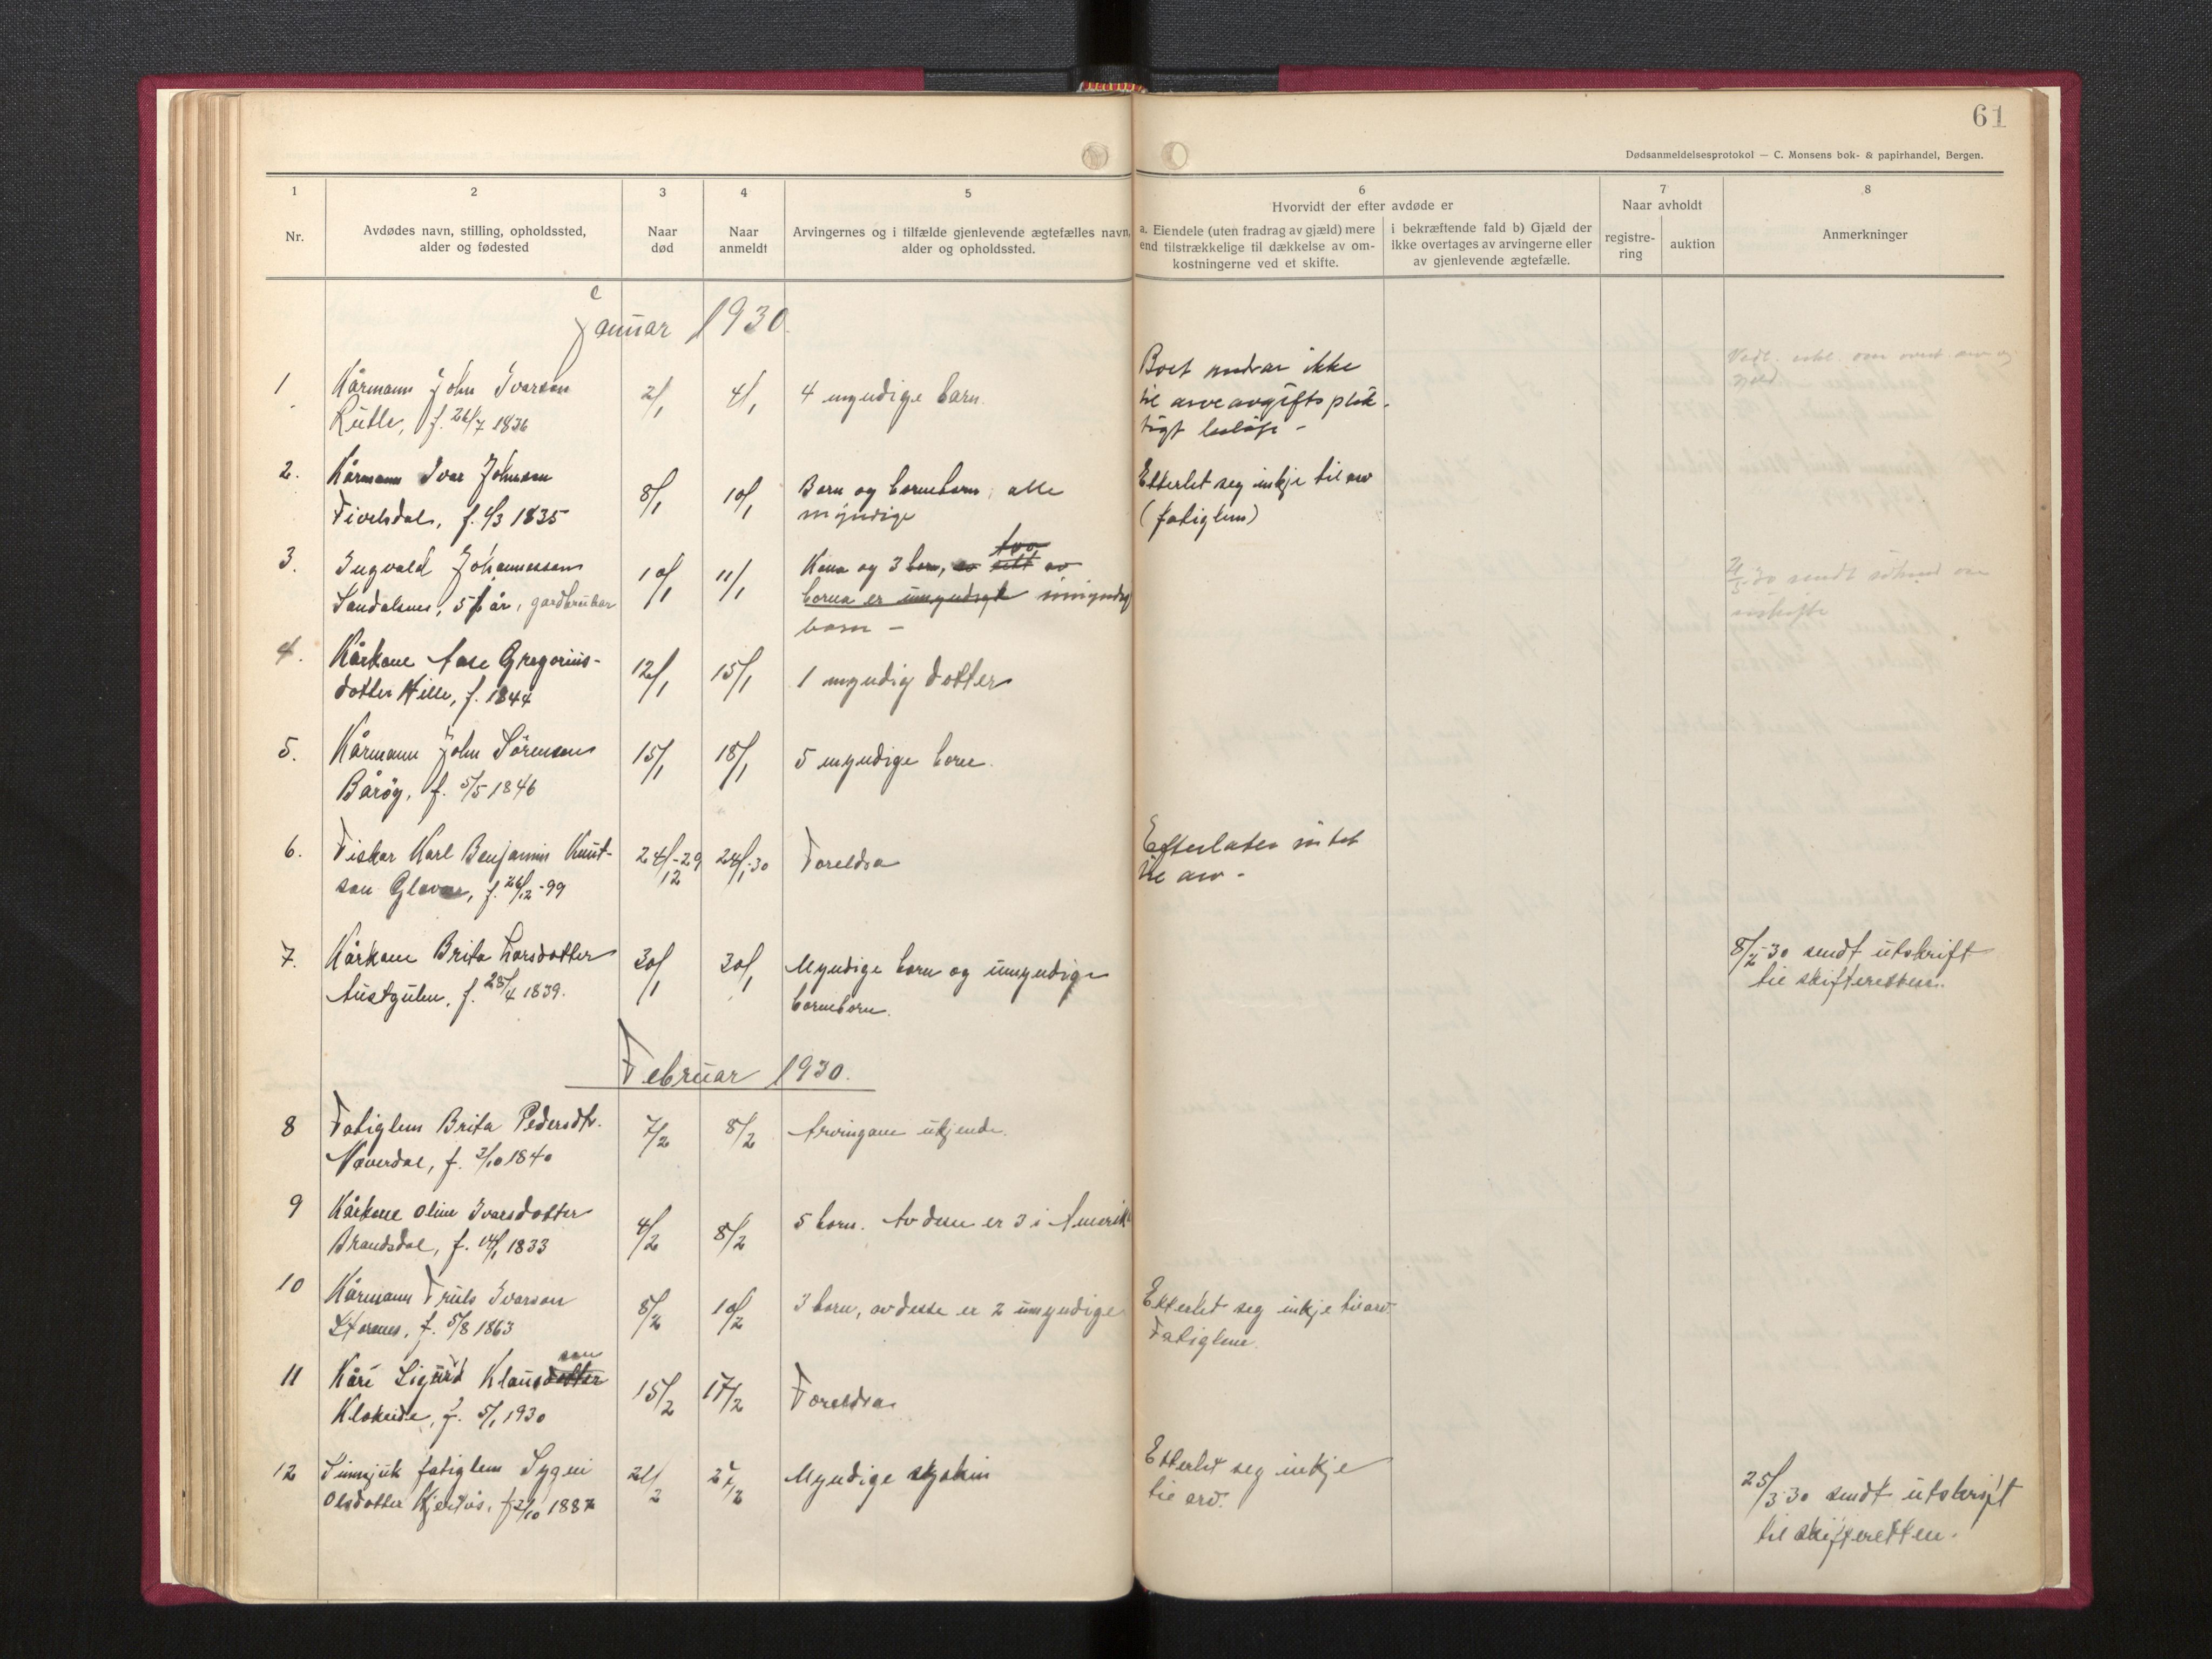 61
Dødsanmeldelsesprotokol — C. Monsens bok- & papirhandel, Bergen.
1 2 3 4 5 6 7 8
Nr.
Avdødes navn, stilling, opholdssted,
alder og fødested
Naar
død
Naar
anmeldt
Arvingernes og i tilfælde gjenlevende ægtefælles navn,
alder og opholdssted.
Hvorvidt der efter avdøde er
a. Eiendele (uten fradrag av gjæld) mere
end tilstrækkelige til dækkelse av om-
kostningerne ved et skifte.
i bekræftende fald b) Gjæld der
ikke overtages av arvingerne eller
av gjenlevende ægtefælle.
Naar avholdt
registre-
ring
auktion
Anmerkninger
Januar 1930.
1 Kårmann John Ivarson 2/1 4/1 4 myndige barn.
Rutle, f. 26/7 1836
Boet ikke
til arveavgifts plik-
tigt
gjeld
2. Kårmann Ivar Johnson 8/1 10/1 Born og borneborn, alle
Fivelsdal, f. 4/3 1835 myndige
Etterlet seg inkje til arv
(fatiglem)
3. Ingvald Johannesson 10/1 11/1 Kona og 3 born, av tvo av
Sandalsnes, år, gardbrukar borna er umyndige umyndig
born —
21/3-30 sendt
4. Kårkone Aase Gregorius- 12/1 15/1 1 myndig dotter
dotter Hille, f. 1844
5. Kårmann John Sørenson 15/1 18/1 5 myndige born.
Bårøy, f. 5/5 1846
6. Fiskar Karl Benjamin Knut- 24/12-29 24/1-30 Foreldra
son f. 26/12-99
Efterlater intet
til arv -
7. Kårkone Brita Larsdotter 30/1 30/1 Myndige born og umyndige
Austgulen, f. 28/4 1839. borneborn.
8/2-30 sendt utskrift
til skifteretten.
Februar 1930.
8 Fatiglem Brita Pedersdtr. 7/2 8/2 Arvingane ukjende.
Næverdal, f. 2/10 1840
9 Kårkone Oline Ivarsdotter 4/2 8/2 5 born. Av desse er 3 i Amerik
Brandsdal, f. 14/1 1833
10 Kårmann Truls Ivarson 8/2 10/2 3 born, av desse er 2 umyndige
Storenes, f. 5/8 1863
Etterlet seg inkje til arv.
Fatiglem.
son
11 Kåre Sigurd Klausdotter 15/2 17/2 Foreldra
Klokeide, f. 5/1 1930
12 Sinnsjuk fatiglem Sygni 21/2 27/2 Myndige syskin
Olsdotter f. 2/10 1887
Etterlet seg inkje
til arv.
25/3-30 sendt utskrift
til skifteretten.